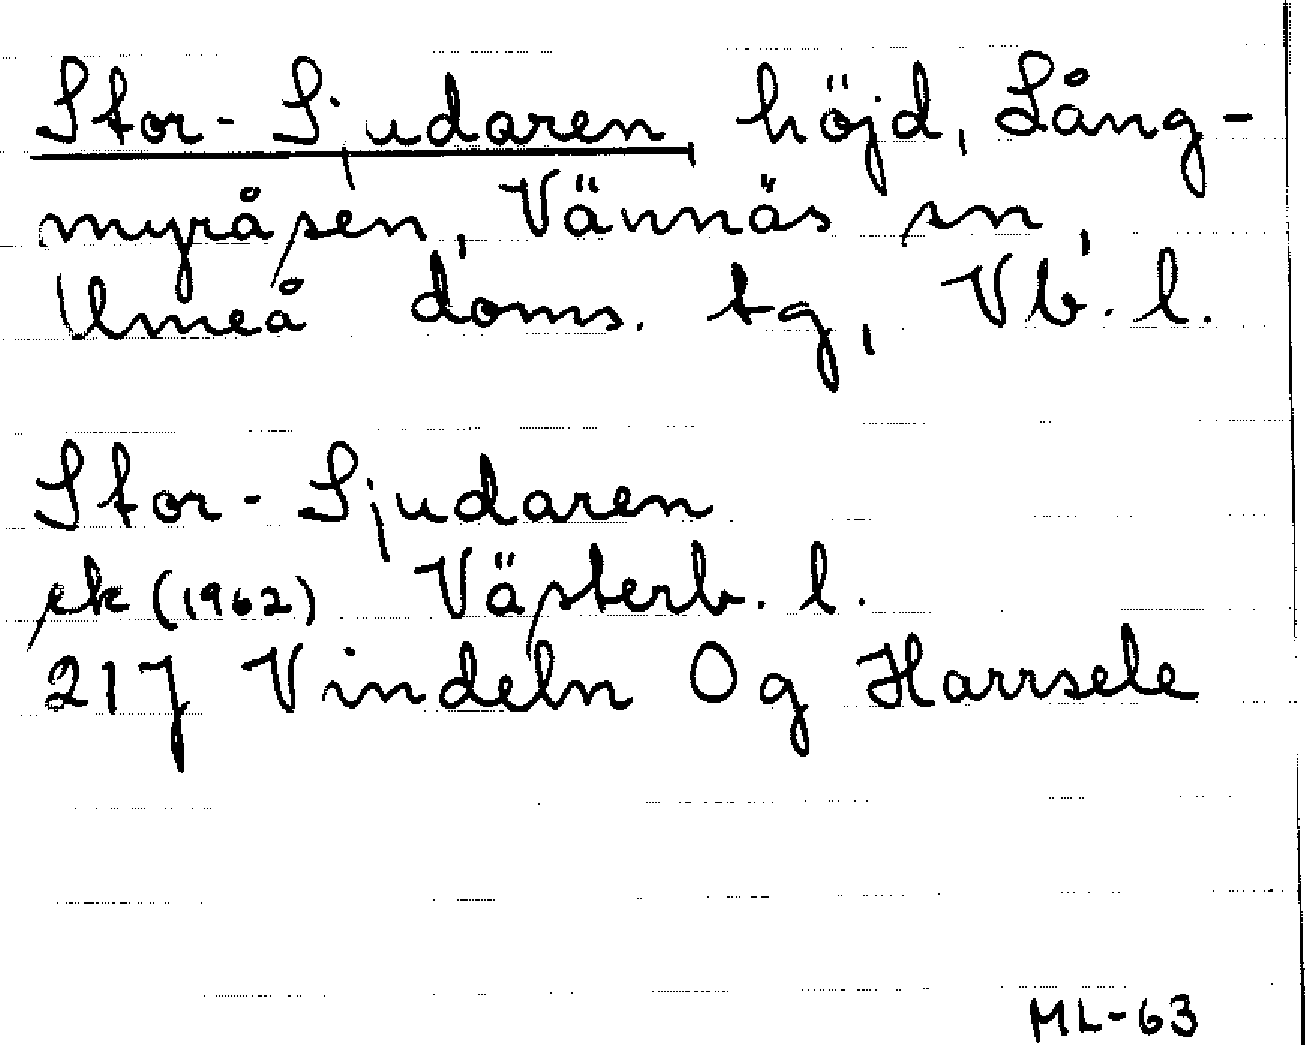 Stor-Sjudaren, höjd, Lång-
myråsen, Vännäs sn,
Umeå doms. tg, Vb. l.
Stor-Sjudaren
ek (1962) Västerb. l.
21J Vindeln Og Harrsele
ML-63